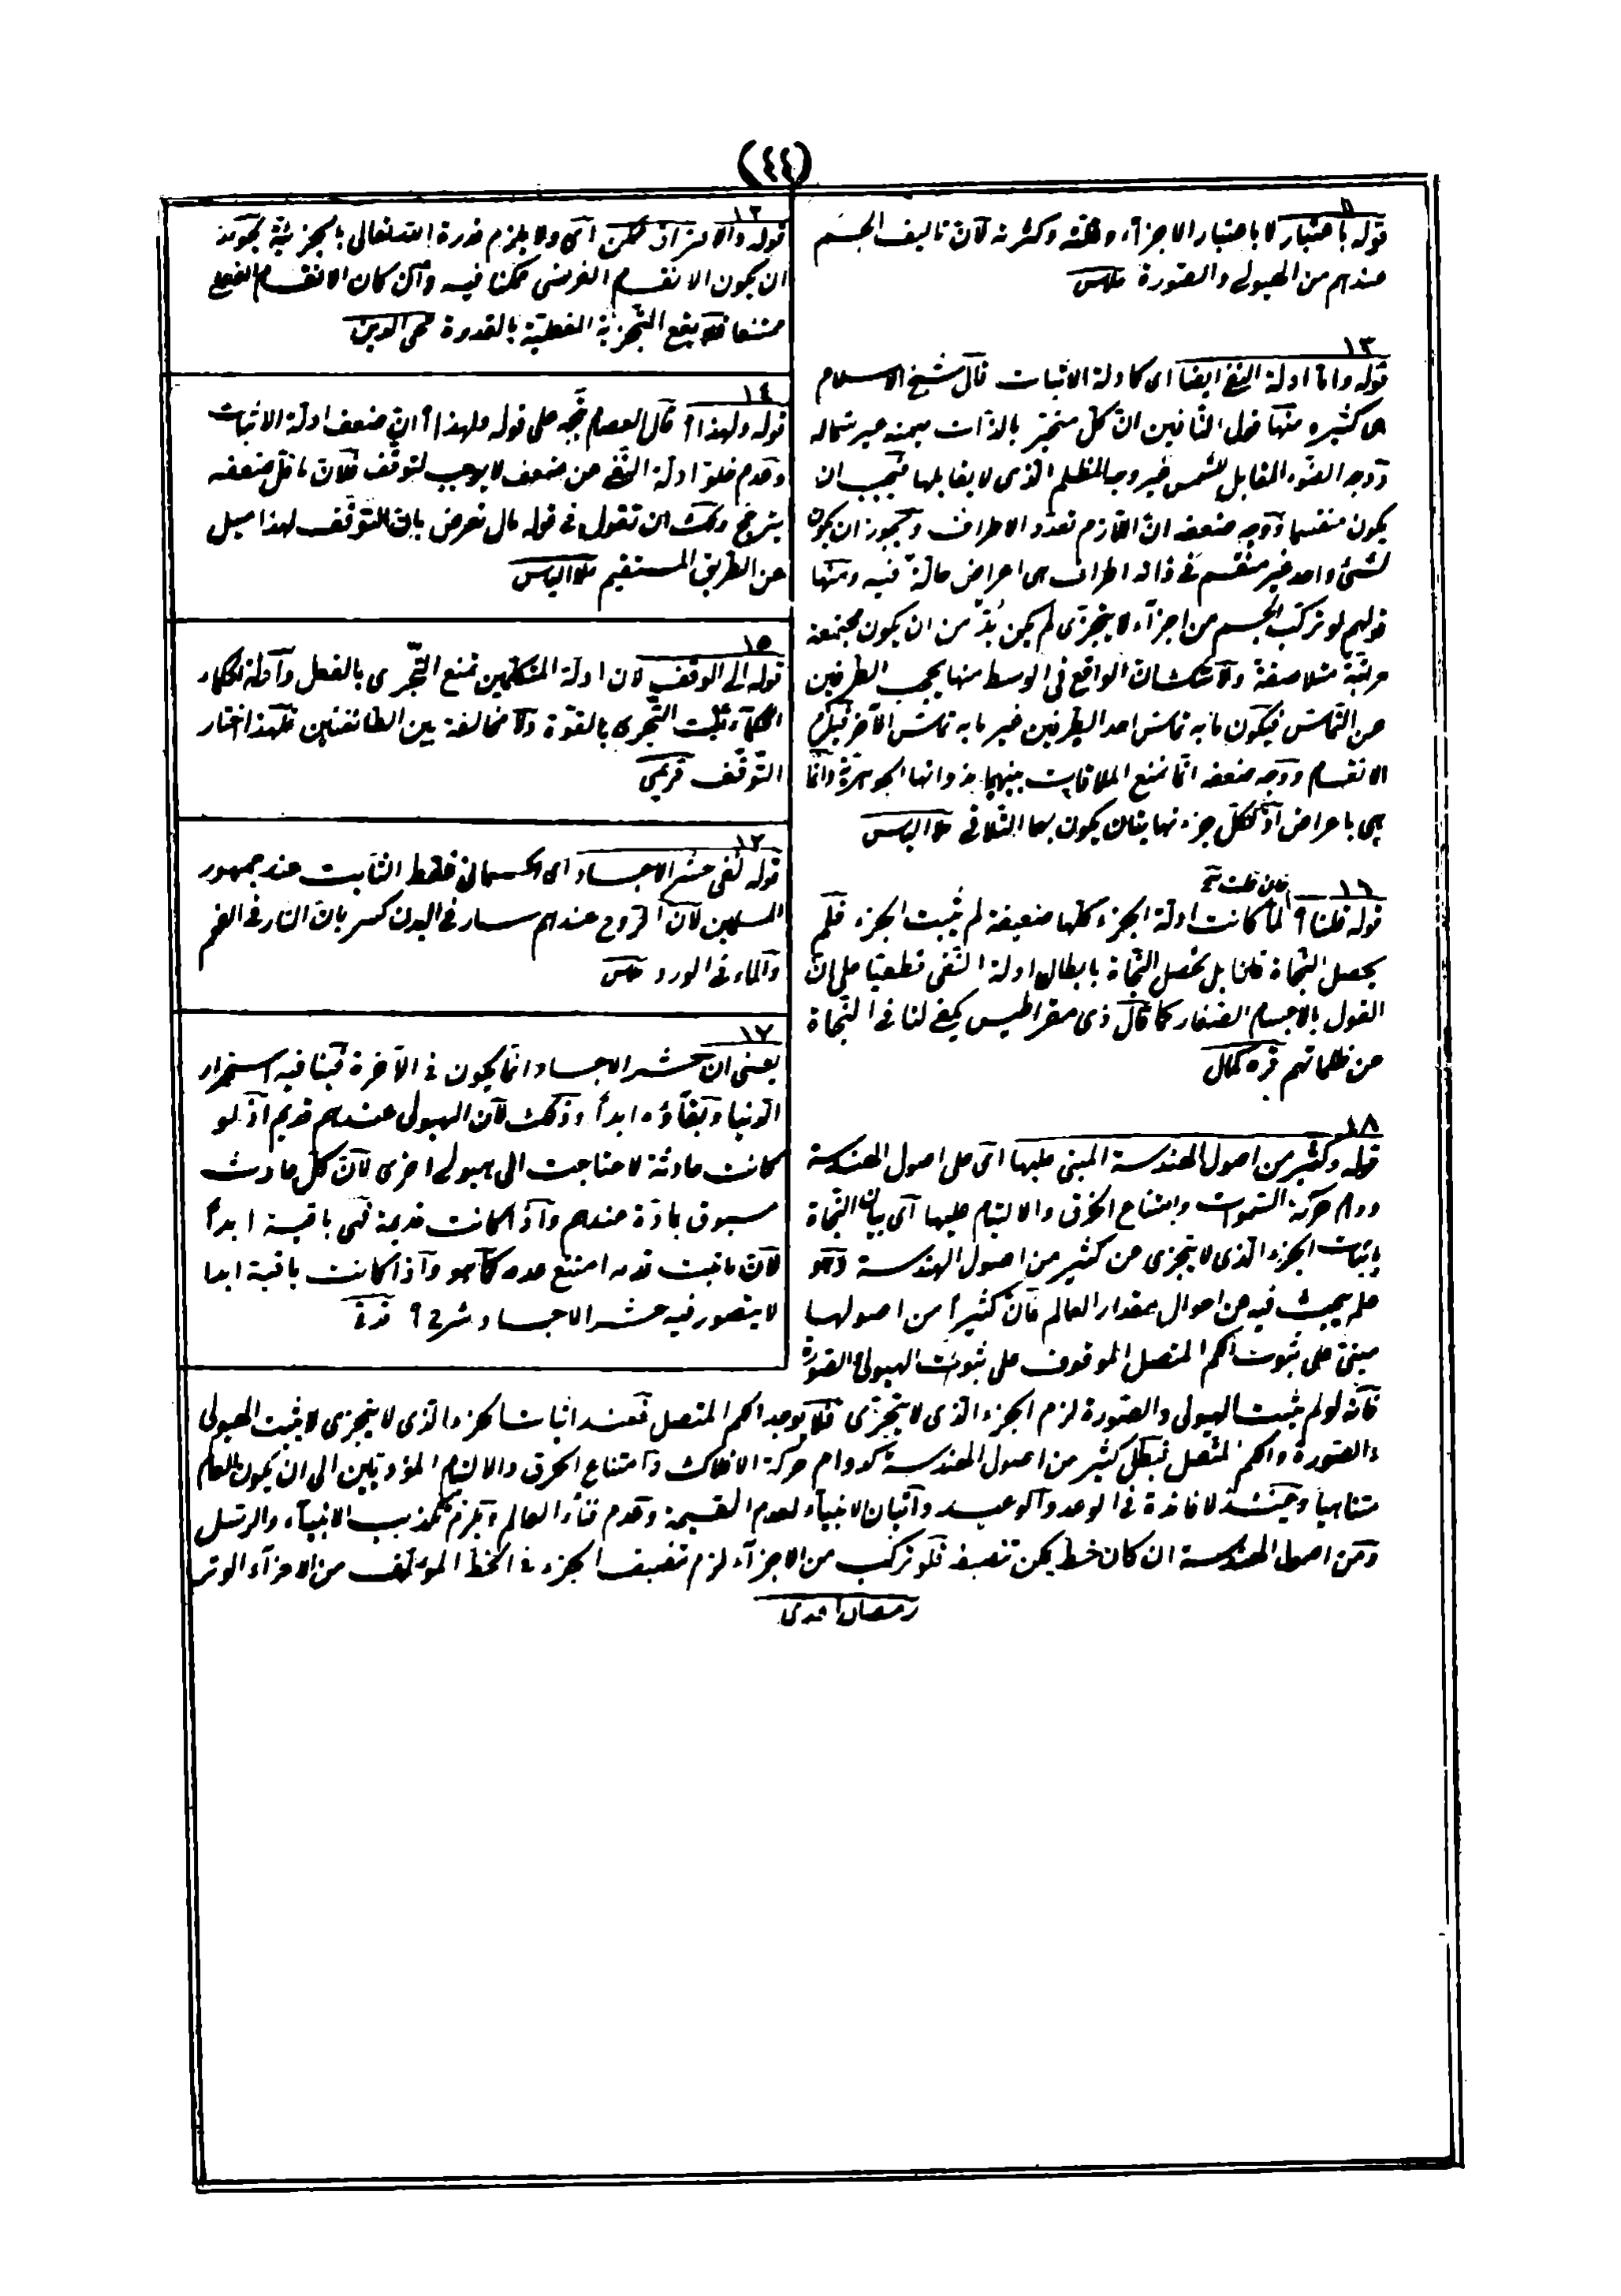 (٤٤)
١١
قوله باعتبار لا باعتبار الاجزآء وقلته وكثرته لآن تاليف الجسم
عندهم من الهيولى والصورة ملاس
١٣
قوله واما ادلة النفى ايضا اى كادلة الاثبات قال شيخ الاسلام
هى كثيره منها قول النافين ان كل متحيز بالذات يمينه غير شماله
ووجه الضوء المقابل للشمس غير وجه المظلم الذى لا يقابلها فيجب ان
يكون منقسما ووجه ضعفه ان اللازم تعدد الاطراف ويجوز ان يكون
لشئ واحد غير منقسم فى ذاته اطراف هى اعراض حالة فيه ومنها
قولهم لو تركب الجسم من اجزآء لا يتجزى لم يكن بدّ من ان يكون مجتمعة
مرتبة متلاصقة ولا شك ان الواقع فى الوسط منها يحجب الطرفين
عن التماس فيكون مابه تماس احد الطرفين غير مابه تماس الآخر فيلزم
الانقسام ووجه ضعفه انا نمنع الملاقات بينهما بذواتها الجوهرية وانما
هى باعراض اذ لكل جزء نهايتان يكون بهما التلاقى ملا الياس
١٦ فان قلت
قوله قلنا ٩ لما كانت ادلة الجزء كلها ضعيفة لم يثبت الجزء فلم
يحصل النجاة قلنا بل يحصل النجاة بابطال ادلة النفى قطعيا على ان
القول بالاجسام الصغار كما قال ذى مقراطيس يكفى لنا فى النجاة
عن ظلماتهم قره كمال
١٨
قوله وكثير من اصول الهندسة المبنى عليها اى على اصول الهندسة
دوام حركة السموات وامتناع الخرق والالتيام عليها اى بيان النجاة
باثبات الجزء الذى لا يتجزى عن كثير من اصول الهندسة وهو
علم يبحث فيه عن احوال مقدار العالم فان كثيراً من اصولها
مبنىّ على ثبوت الكم المتصل الموقوف على ثبوت الهيولى والصورة
فانه لو لم يثبت الهيولى والصورة لزم الجزء الذى لا يتجزى فلا يوجد الكم المتصل فعند اثبات الجزء الذى لا يتجزى لا يثبت الهيولى
والصورة والكم المتصل فيبطل كثير من اصول الهندسة كدوام حركة الافلاك وامتناع الخرق والالتيام المؤديتين الى ان يكون العالم
متناهيا وحينئذ لا فائدة فى الوعد والوعيد واتيان الانبياء لعدم القيمة وعدم فناء العالم ويلزم تكذيب الانبيآء والرسل
ومن اصول الهندسة ان كان خط يمكن تنصيفه فلو تركب من الاجزآء لزم تنصيف الجزء فى الخط المؤلف من الاجزآء الوتر
رمضان افندى
١٢
قوله والافتراق ممكن اى ولا يلزم قدرة الله تعالى بالجزئية
ان يكون الانقسام الفرضى ممكنا فيه وان كان الانقسام الفعلى
ممتنعا فلا يقع التجزئة الفعلية بالقدرة محى الدين
١٤
قوله ولهذا أ قال العصام يتجه على قوله ولهذا أ ان ضعف ادلة الاثبات
وعدم خلوّ ادلة النفى عن ضعف لا يوجب التوقف فلان ما قل ضعفه
يترجح ولك ان تقول فى قوله مال تعرض بان التوقف لهذا ميل
عن الطريق المستقيم ملا الياس
١٥
قوله الى الوقف لان ادلة المتكلمين تمنع التجزى بالفعل وادلة الحكماء
الحكمآء تثبت التجزى بالقوة ولا مخالفة بين الطائفتين فلهذا اختار
التوقف قريمى
١٢
قوله نفى حشر الاجساد اى الجسمانى فقط الثابت عند جمهور
المسلمين لان الروح عندهم سار فى البدن كسريان النار فى الفحم
والماء فى الورد ملاس
١٧
يعنى ان حشر الاجساد انما يكون فى الآخرة فينافيه استمرار
الدنيا وبقآؤه ابدأ وذلك لان الهيولى عندهم قديم اذ لو
كانت حادثة لاحتاجت الى هيولى اخرى لان كل حادث
مسبوق بمادة عندهم واذا كانت قديمة فهى باقية ابدأ
لان ما ثبت قدمه امتنع عدمه كما هو واذا كانت باقية ابدا
لا يتصور فيه حشر الاجساد شرح ٩